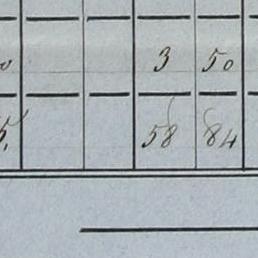 3 50
58 84